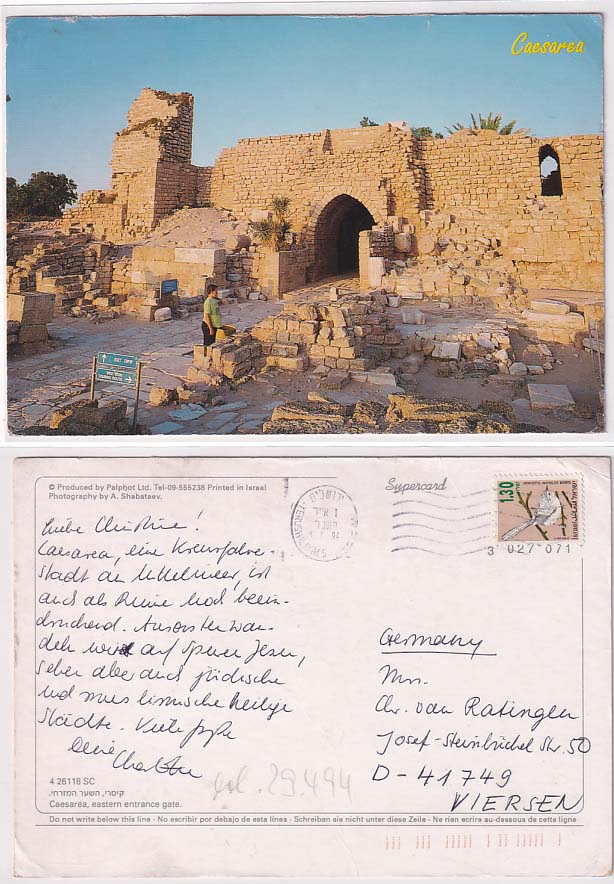 Caesarea
© Produced by Palphot Ltd. Tel-09-555238 Printed in Israel
Photography by A. Shabataev.
Supercard
1.30
Israel
3 027 071
Liebe Christine!
Caesarea, eine Kreuzfahrer-
stadt am Mittelmeer, ist
auch als Ruine noch beein-
druckend. Ansonsten wan-
deln wir auf Spuren Jesu,
sehen aber auch jüdische
und muslimische heilige
Städte. Viele Grüße
Deine Charlotte
Germany
Mrs.
Chr. van Ratingen
Josef-Steinbüchel Str. 50
D-41749
VIERSEN
4 26118 SC
קיסרי, השער המזרחי.
Caesarea, eastern entrance gate.
erl. 29.4.94
Do not write below this line - No escribir por debajo de esta línea - Schreiben sie nicht unter diese Zeile - Ne rien ecrire au-dessous de cette ligne